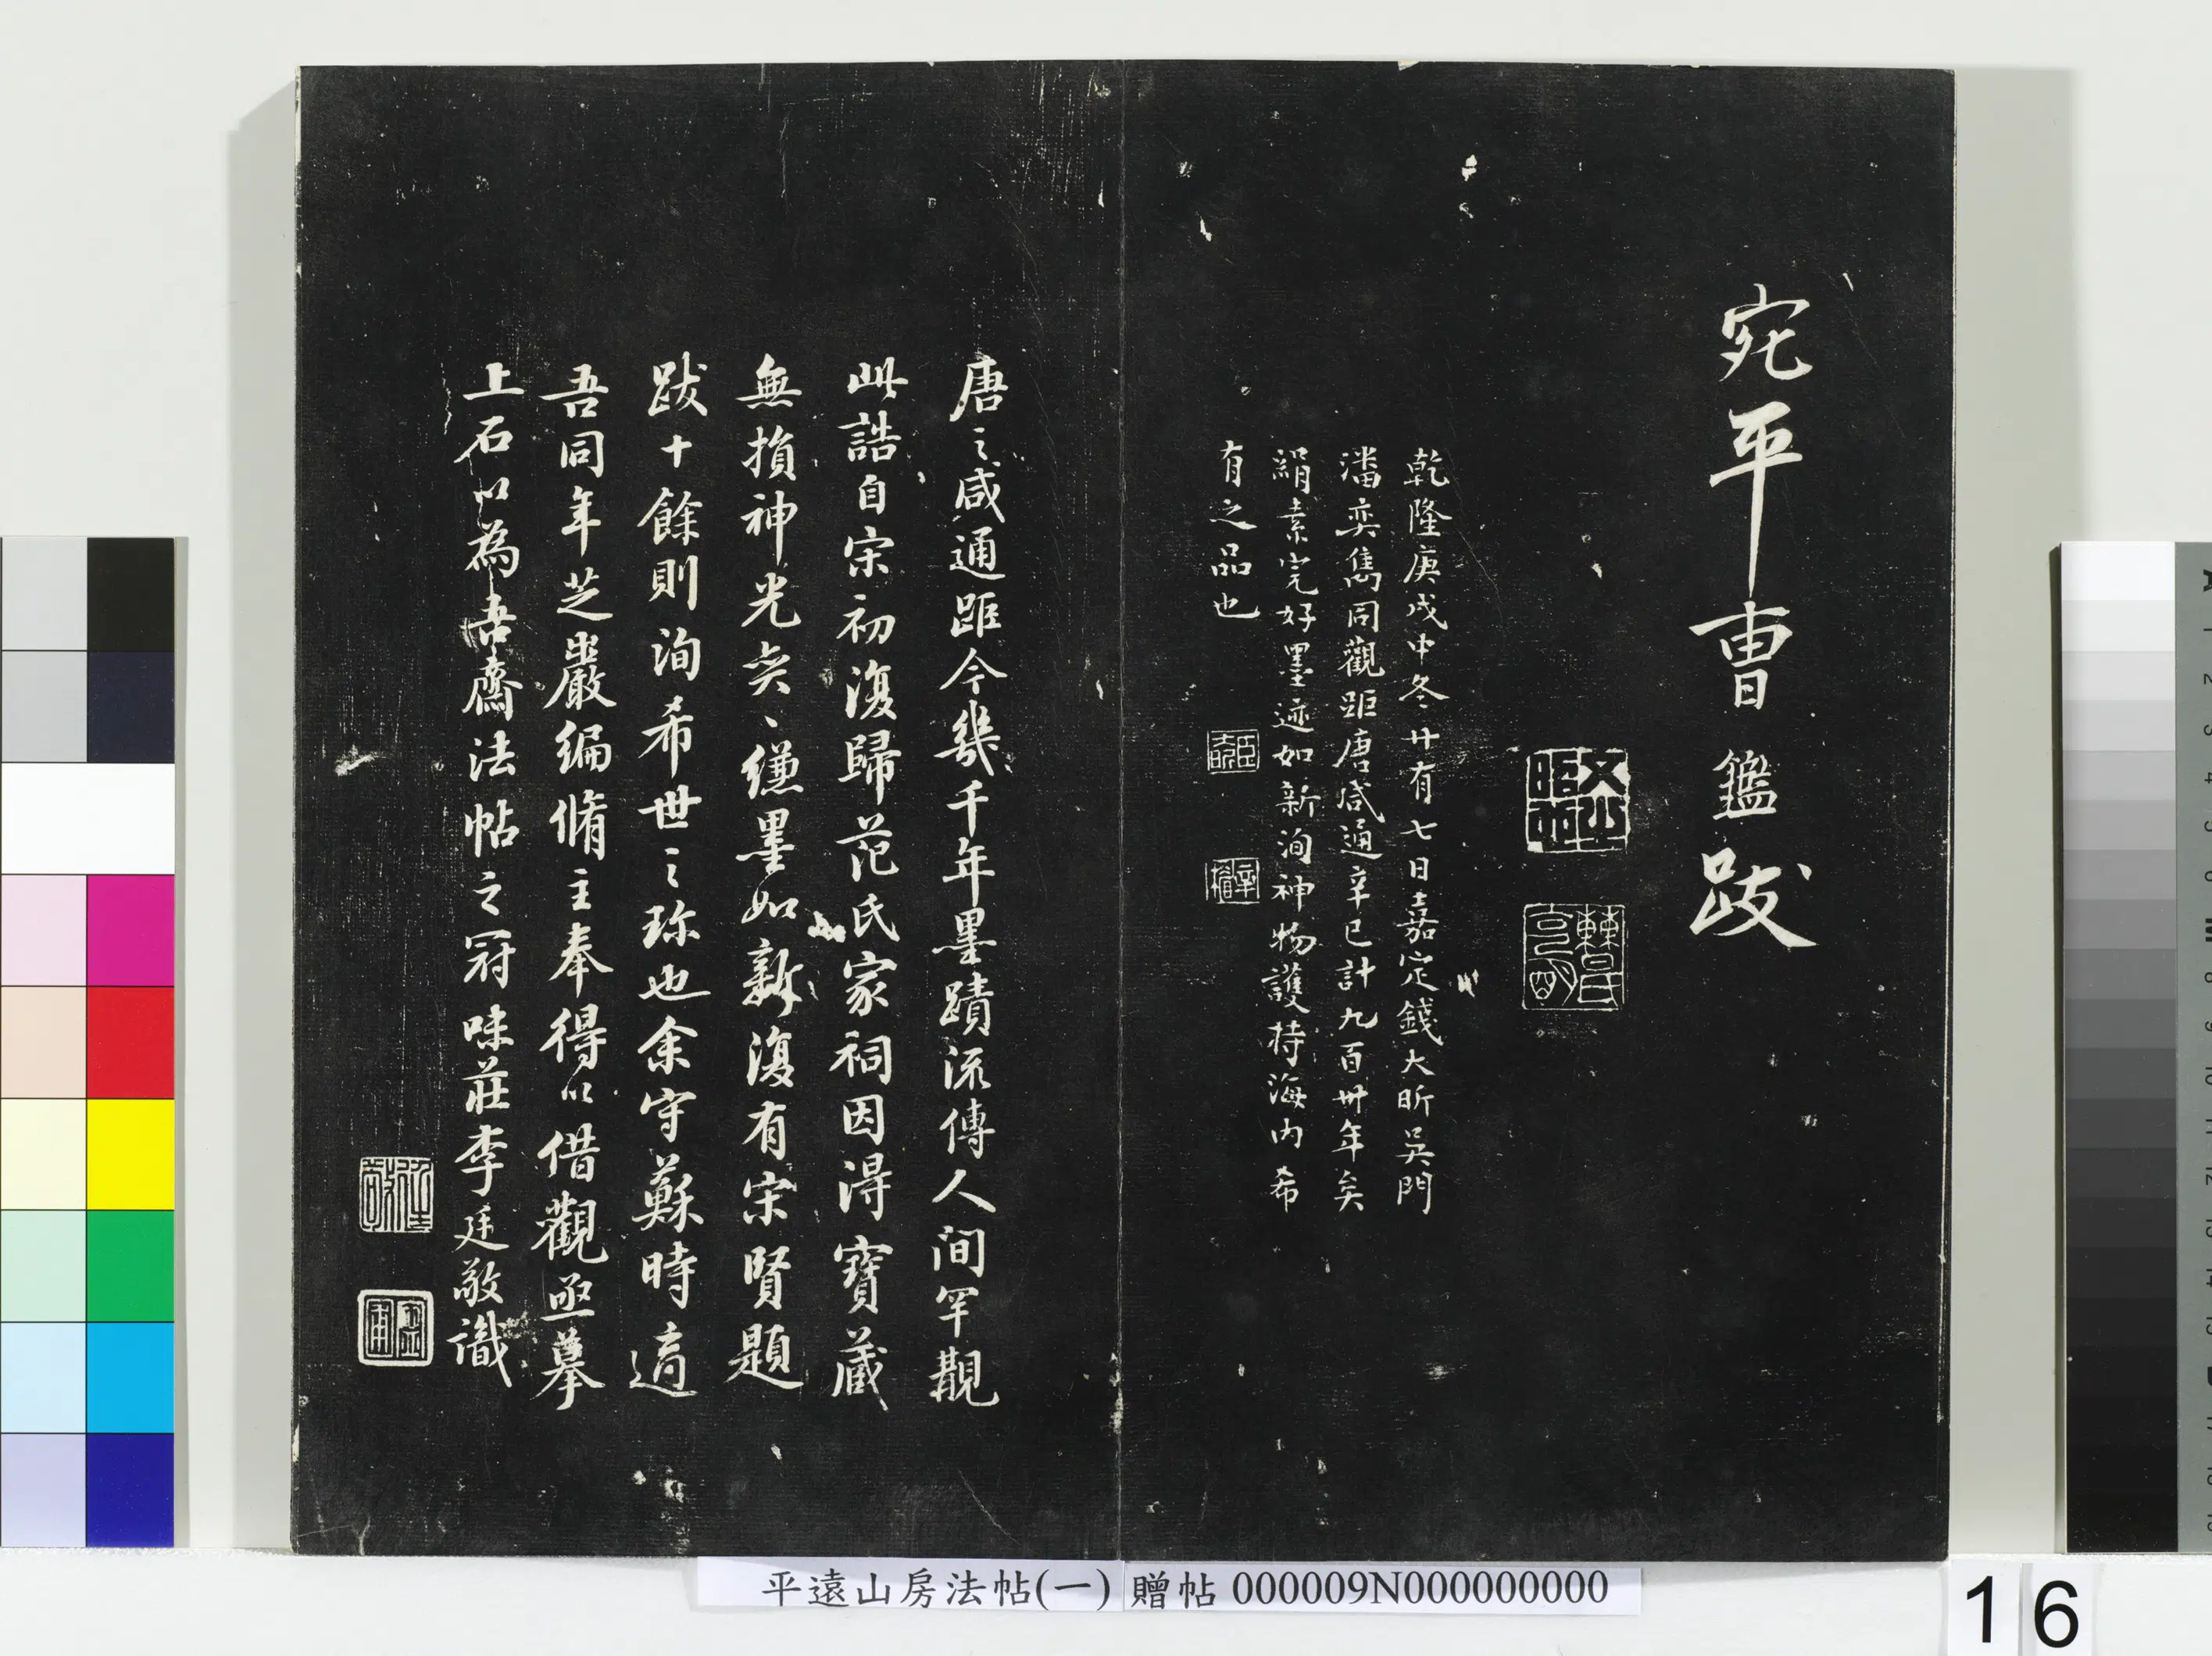 宛平曹鑑跋
乾隆庚戌中冬廿有七日嘉定錢大昕吳門
潘奕雋同觀距唐咸通辛巳計九百卅年矣
絹素完好墨迹如新洵神物護持海內希
有之品也
唐之咸通距今幾千年墨蹟流傳人間罕覯
此誥自宋初復歸范氏家祠因得寶藏
無損神光奕〻縑墨如新復有宋賢題
跋十餘則洵希世之珍也余守蘇時適
吾同年芝巖編脩主奉得以借觀亟摹
上石以為吾齋法帖之冠味莊李廷敬識
平遠山房法帖(一) 贈帖 000009N000000000
16